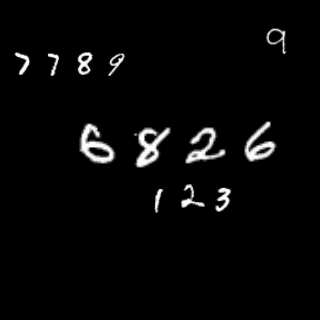 9
7789
6826
123